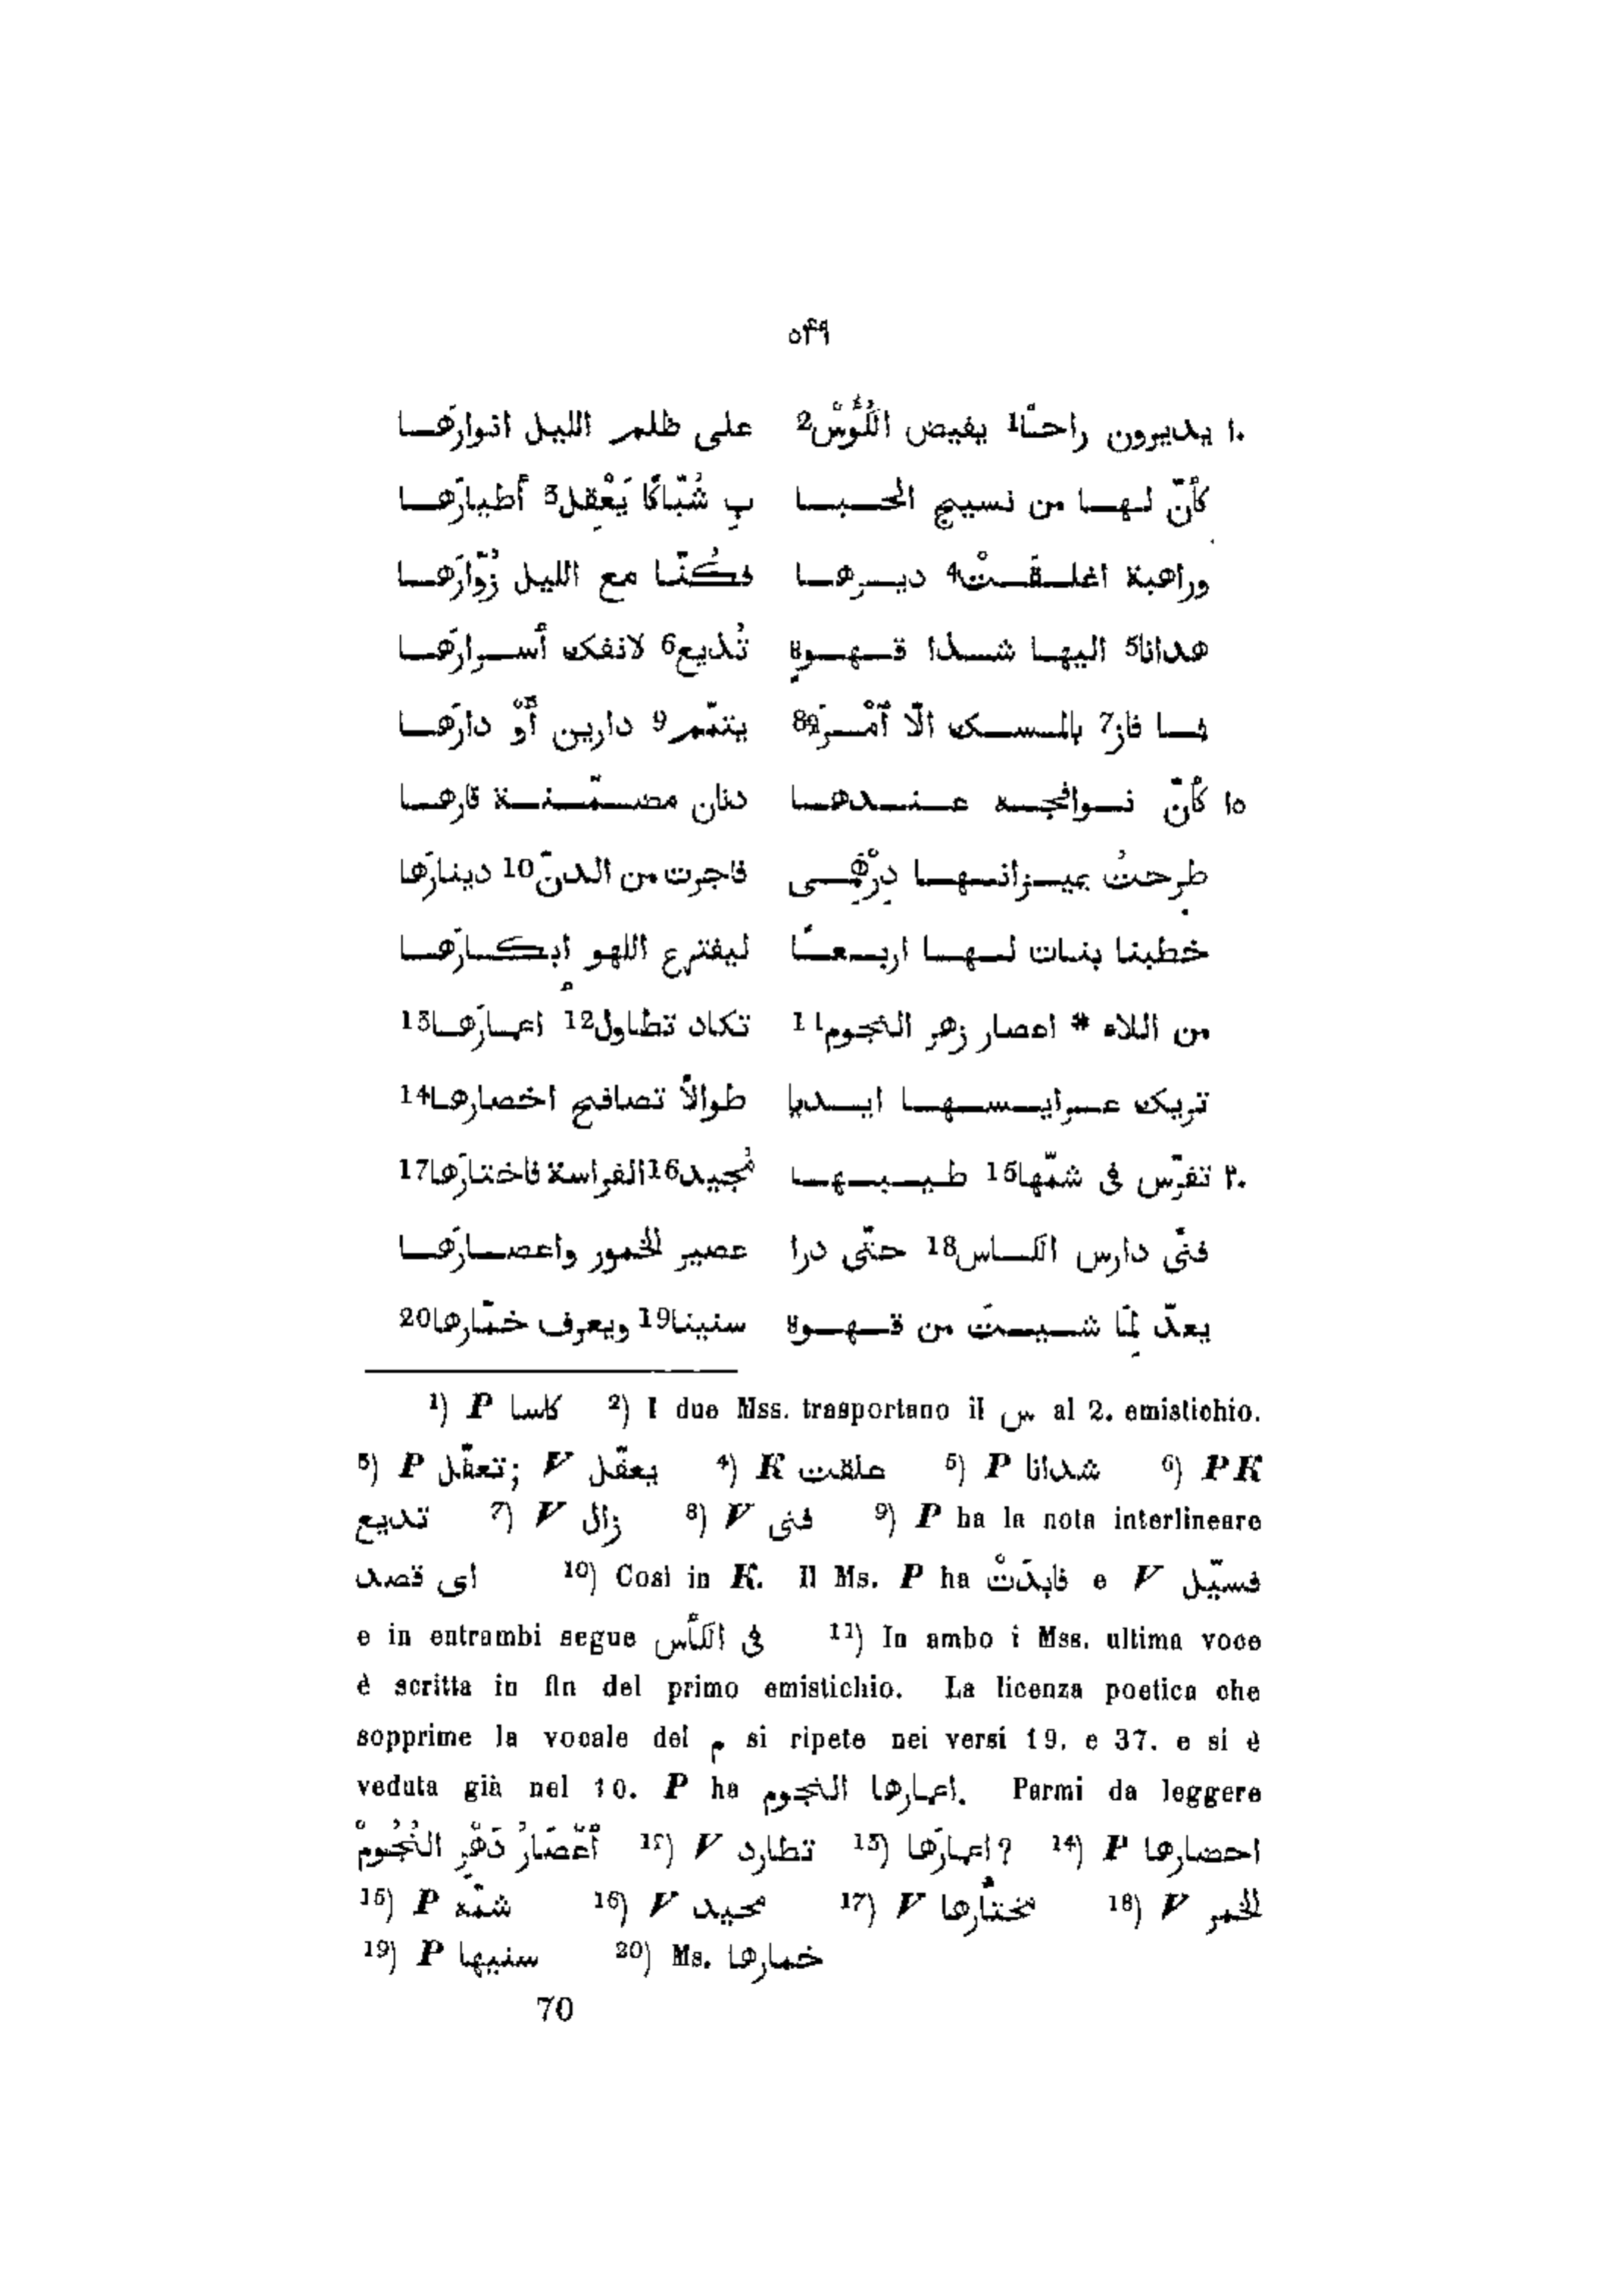 ٥٤٩
١٠ يديرون راحًا1 يفيض الكُؤُوسْ2 على ظلم الليل انوارَها
كأنّ لها من نسيج الحبا بِ شُبّاكًا يَعْقِل3 أطيارَها
وراهبة اغلقَتْ4 ديرها فكُنّا مع الليل زُوّارَها
هدانا5 اليها شذا قهوةٍ تُذيع6 لانفك أسرارَها
فما فاز7 بالمسك الّا أمْرَؤ8 يتمّم9 دارين أَوْ دارَها
١٥ كأنّ نوافجه عندها دنان مضمّنة قارها
طرحتُ بميزانها دِرْهَمِى فاجرت من الدنّ10 دينارَها
خطبنا بنات لها اربعًا ليفترع اللهو إبكارَها
من اللاء * اعصار زهر النجوم11 تكاد تطاول12 اعمارَها13
تريك عرايسها ايديا طوالًا تصافح اخصارها14
٢٠ تفرّس فى شمّها15 طيبها مُجيد16 الفراسة فاختارَها17
فتًى دارس الكاس18 حتّى درا عصير الخمور واعصارَها
يعدّ لِمَا شيتَ من قهوة سنينا19 ويعرف خمّارها20
1) P كاسا 2) I due Mss. trasportano il س al 2. emistichio.
3) P تعقّل; V يعقّل 4) K علقت 5) P شدانا 6) PK
تديع 7) V زال 8) V فتى 9) P ha la nota interlineare
اى قصد 10) Cosi in K. Il Ms. P ha فابدَتْ e V فسيّل
e in entrambi segue فى الكأس 11) In ambo i Mss. ultima voce
è scritta in fin del primo emistichio. La licenza poetica che
sopprime la vocale del م si ripete nei versi 19. e 37. e si è
veduta già nel 10. P ha اعمارها النجوم. Parmi da leggere
أَعْصَارُ دَهْرِ النُجُومْ 12) V تطارد 13) اعمارَها? 14) P احصارها
15) P شمّه 16) V محيد 17) V مختارها 18) V الخمر
19) P سنيها 20) Ms. خمارها
70